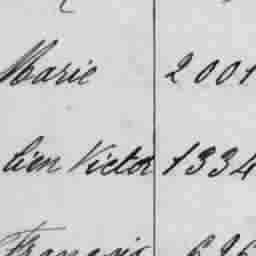 Marie 2001
lien Victor 1334
François 626